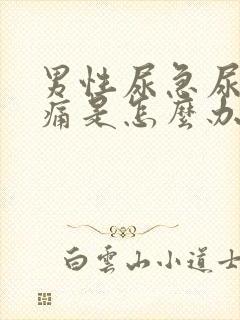 男性尿急尿
痛是怎麼办
白雲山小道士